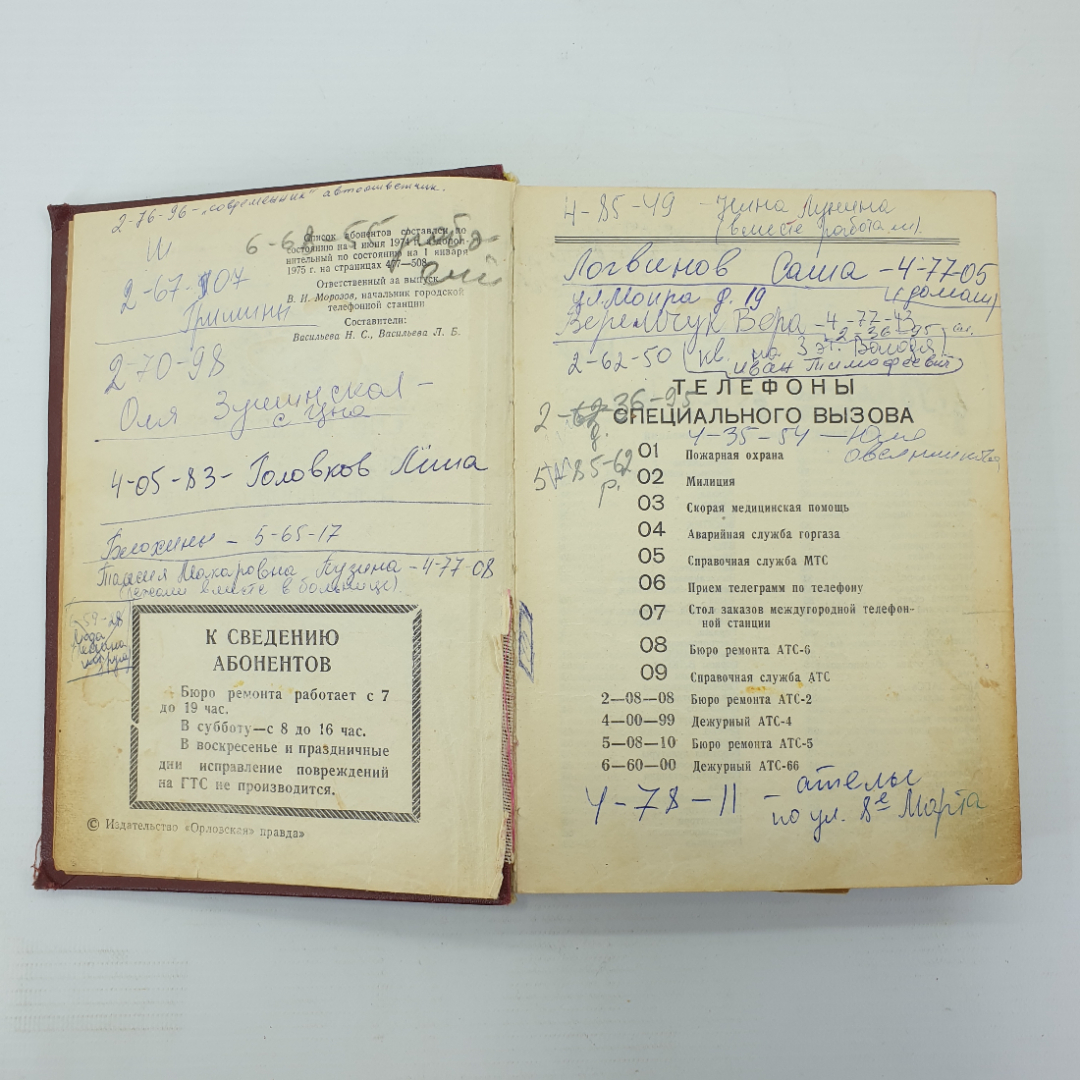 2-76-96 - "современник" автоответчик.
6-68-55 рабо-
чий
Список абонентов составлен по
состоянию на 1 июня 1974 г. Дополнительный по состоянию на 1 января
1975 г. на страницах 477—508.
Ответственный за выпуск
В. И. Морозов, начальник городской
телефонной станции
Составители:
Васильева Н. С., Васильева Л. Б.
2-67-107
Гришины
2-70-98
Оля
4-05-83 - Головков Лёша
Белохины - 5-65-17
Макаровна - 4-77-08
(лежали вместе в больнице)
К СВЕДЕНИЮ
АБОНЕНТОВ
Бюро ремонта работает с 7
до 19 час.
В субботу—с 8 до 16 час.
В воскресенье и праздничные
дни исправление повреждений
на ГТС не производится.
© Издательство «Орловская правда»
4-85-49 - Нина Лунина
(вместе работали).
Логвинов Саша - 4-77-05
ул. Мопра д. 19
Веремчук Вера - 4-77-43
2-36-95
2-62-50 (кв. на 3 эт. Володя
Иван Тимофеевич)
ТЕЛЕФОНЫ
СПЕЦИАЛЬНОГО ВЫЗОВА
36-95
д.
4-35-54 - Юля
Овсянникова
85-62
р.
01 Пожарная охрана
02 Милиция
03 Скорая медицинская помощь
04 Аварийная служба горгаза
05 Справочная служба МТС
06 Прием телеграмм по телефону
07 Стол заказов междугородной телефон-
ной станции
08 Бюро ремонта АТС-6
09 Справочная служба АТС
2—08—08 Бюро ремонта АТС-2
4—00—99 Дежурный АТС-4
5—08—10 Бюро ремонта АТС-5
6—60—00 Дежурный АТС-66
4-78-11 - ателье
по ул. 8е Марта